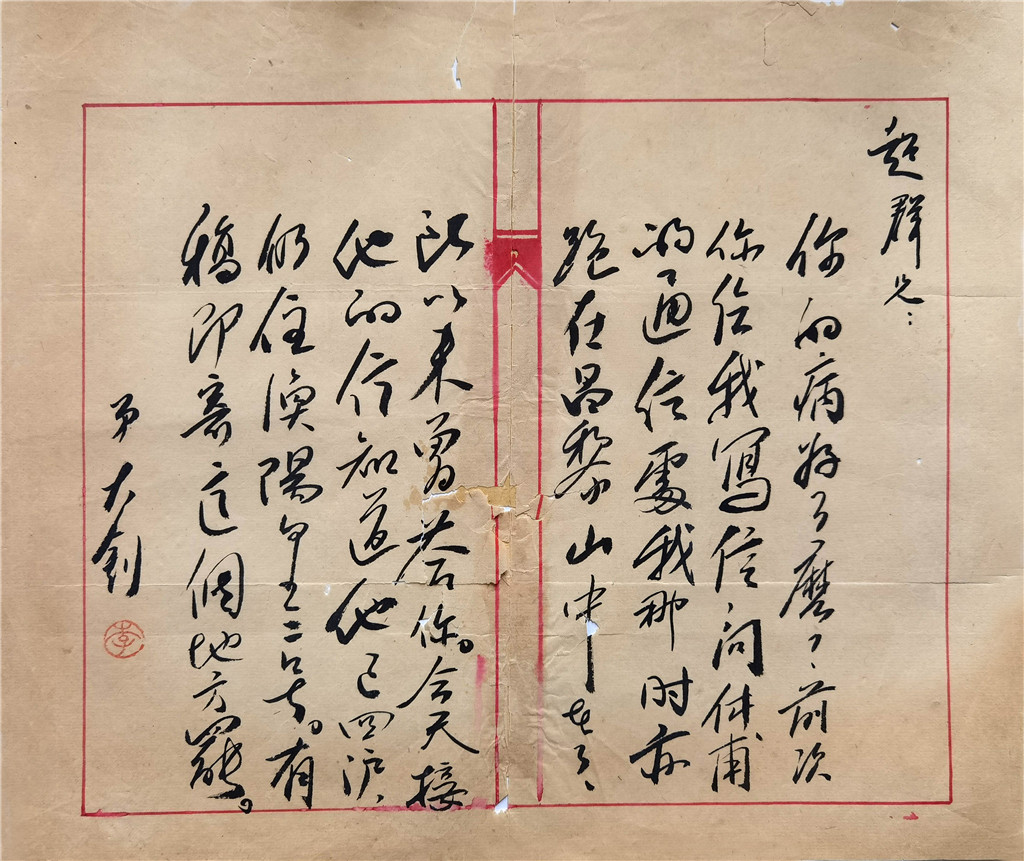 超群兄：
你的病好了麽？前次
你给我寫信问仲甫
的通信處我那时亦
跑在昌黎山中去了、
所以未曾答你。今天接
他的信知道他已回沪、
仍住渔陽里二号。有
稿即寄这個地方罷。
弟 大钊
李